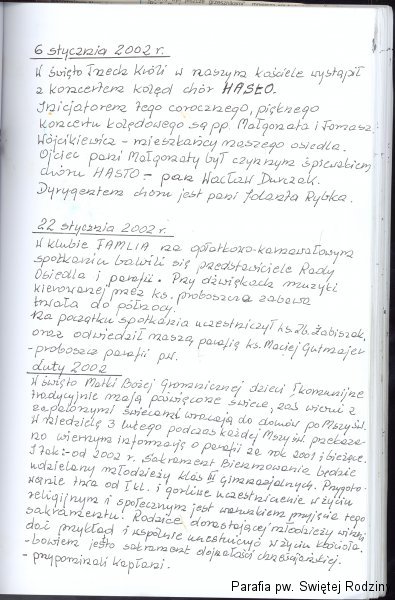 6 stycznia 2002 r.
W święto Trzech Króli w naszym kościele wystąpił
z koncertem kolęd chór HASŁO.
Inicjatorem tego corocznego, pięknego
koncertu kolędowego są pp. Małgorzata i Tomasz
Wójcikiewicz - mieszkańcy naszego osiedla.
Ojciec pani Małgorzaty był czynnym śpiewakiem
chóru HASŁO - pan Wacław Durczak.
Dyrygentem chóru jest pani Jolanta Rybka.
22 stycznia 2002 r.
W klubie FAMILIA na opłatkowo-karnawałowym
spotkaniu bawili się przedstawiciele Rady
Osiedla i parafii. Przy dźwiękach muzyki
kierowanej przez ks. proboszcza zabawa
trwała do północy.
Na początku spotkania uczestniczył ks. Zb. Żabiszak,
oraz odwiedził naszą parafię ks. Maciej Gutmajer
- proboszcz parafii pw.
luty 2002
W święto Matki Bożej Gromnicznej dzieci I komunijne
tradycyjnie mają poświęcone świece, zaś wierni z
zapalonymi świecami wracają do domów po Mszy Św.
W niedzielę 3 lutego podczas każdej Mszy św. przekaza-
no wiernym informację o parafii za rok 2001 i bieżące.
I tak:- od 2002 r. Sakrament Bierzmowania będzie
udzielany młodzieży klas III gimnazjalnych. Przygoto-
wanie trwa od I kl. i gorliwe uczestniczenie w życiu
religijnym i społecznym jest warunkiem przyjęcia tego
sakramentu. Rodzice dorastającej młodzieży winni
dać przykład i wspólnie uczestniczyć w życiu Kościoła,
- bowiem jest to sakrament dojrzałości chrześcijańskiej.
- przypominali kapłani.
Parafia pw. Świętej Rodziny